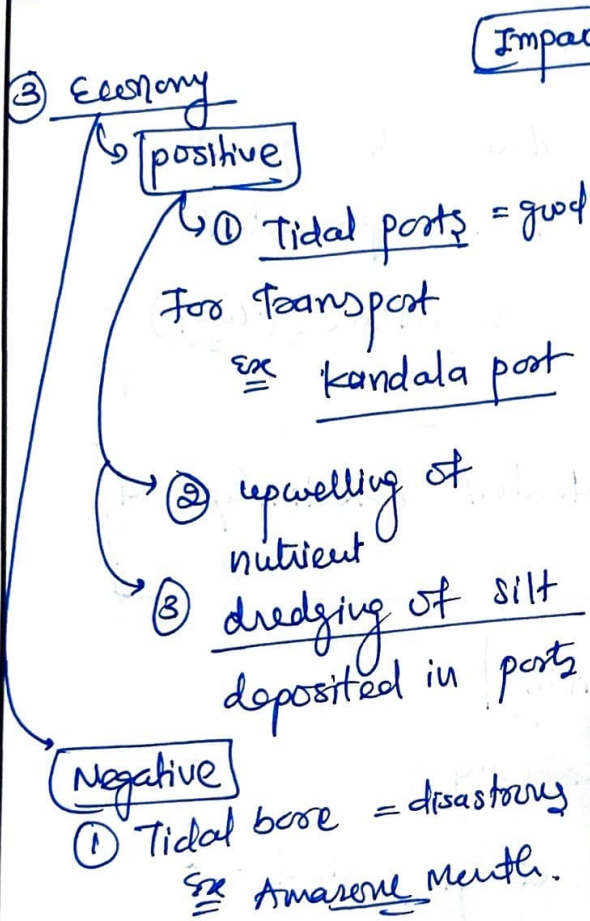 Impac
③ Economy
positive
① Tidal ports = good
For Transport
Ex Kandala port
② upwelling of
nutrient
③ dredging of silt
deposited in ports
Negative
① Tidal bore = disastrous
Ex Amazone Mouth.